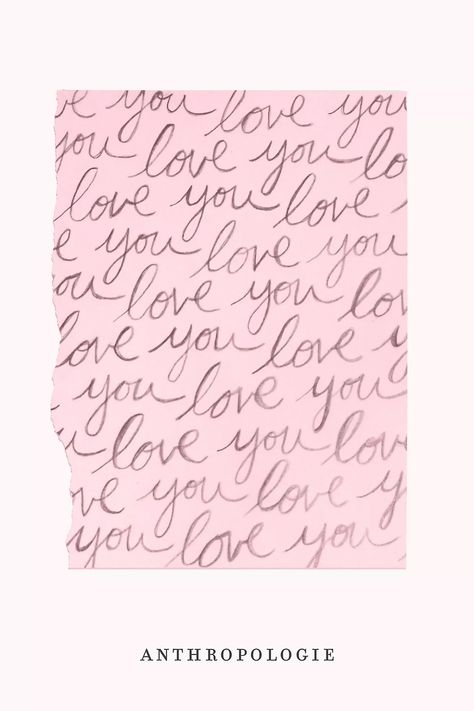 ve you love you
you love you lo
love you love
e you love you
ou love you lov
love you love y
you love you
love you love
ve you love y
you love you
ANTHROPOLOGIE